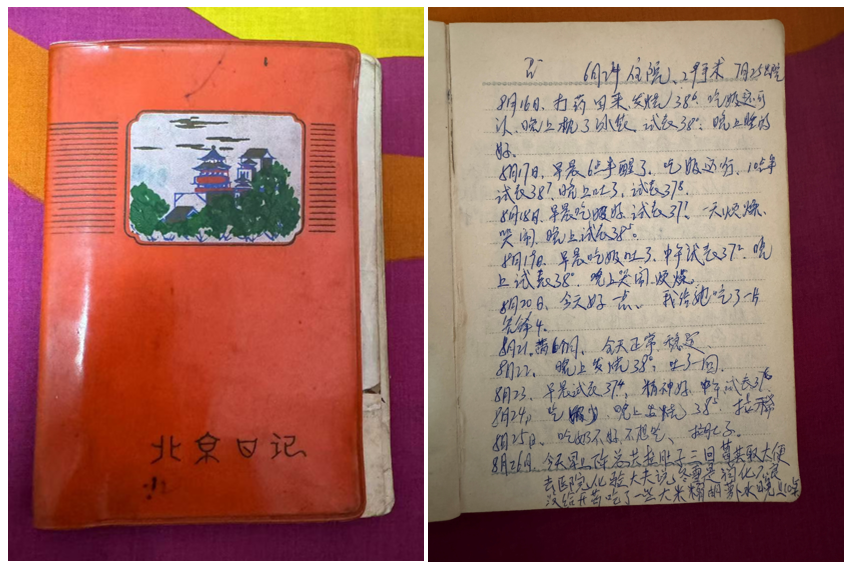 北京日记
6月2 住院、2 手术 7月25出院
8月16日、打药回来,发烧38⁶、吃饭还可
以、晚上 了冰 、试表38°、晚上睡的
好。
8月17日、早晨6点半醒了、吃饭还行、10点半
试表38⁷、晚上吐了、试表37⁸、
8月18日、早晨吃 好、试表37¹、一天烦燥、
哭闹、晚上试表38⁵。
8月19日、早晨吃 吐了、中午试表37²、晚
上试表38°、晚上哭闹、烦燥、
8月20日、今天好一点、我给她吃了一片
先锋4、
8月21、 6个月、今天正常 稳定、
8月22、晚上发烧38°、吐了一回、
8月23、早晨试表37⁴、精神好、中午试表37⁶
8月24、吃 少、晚上发烧38²、拉稀
8月25日、吃奶不好不想吃、拉肚子、
8月26日、今天早上 总共拉肚子三回 大便
去医院化验大夫说 是消化不良
没给开药吃了一些大米糊胡萝卜水晚上10点